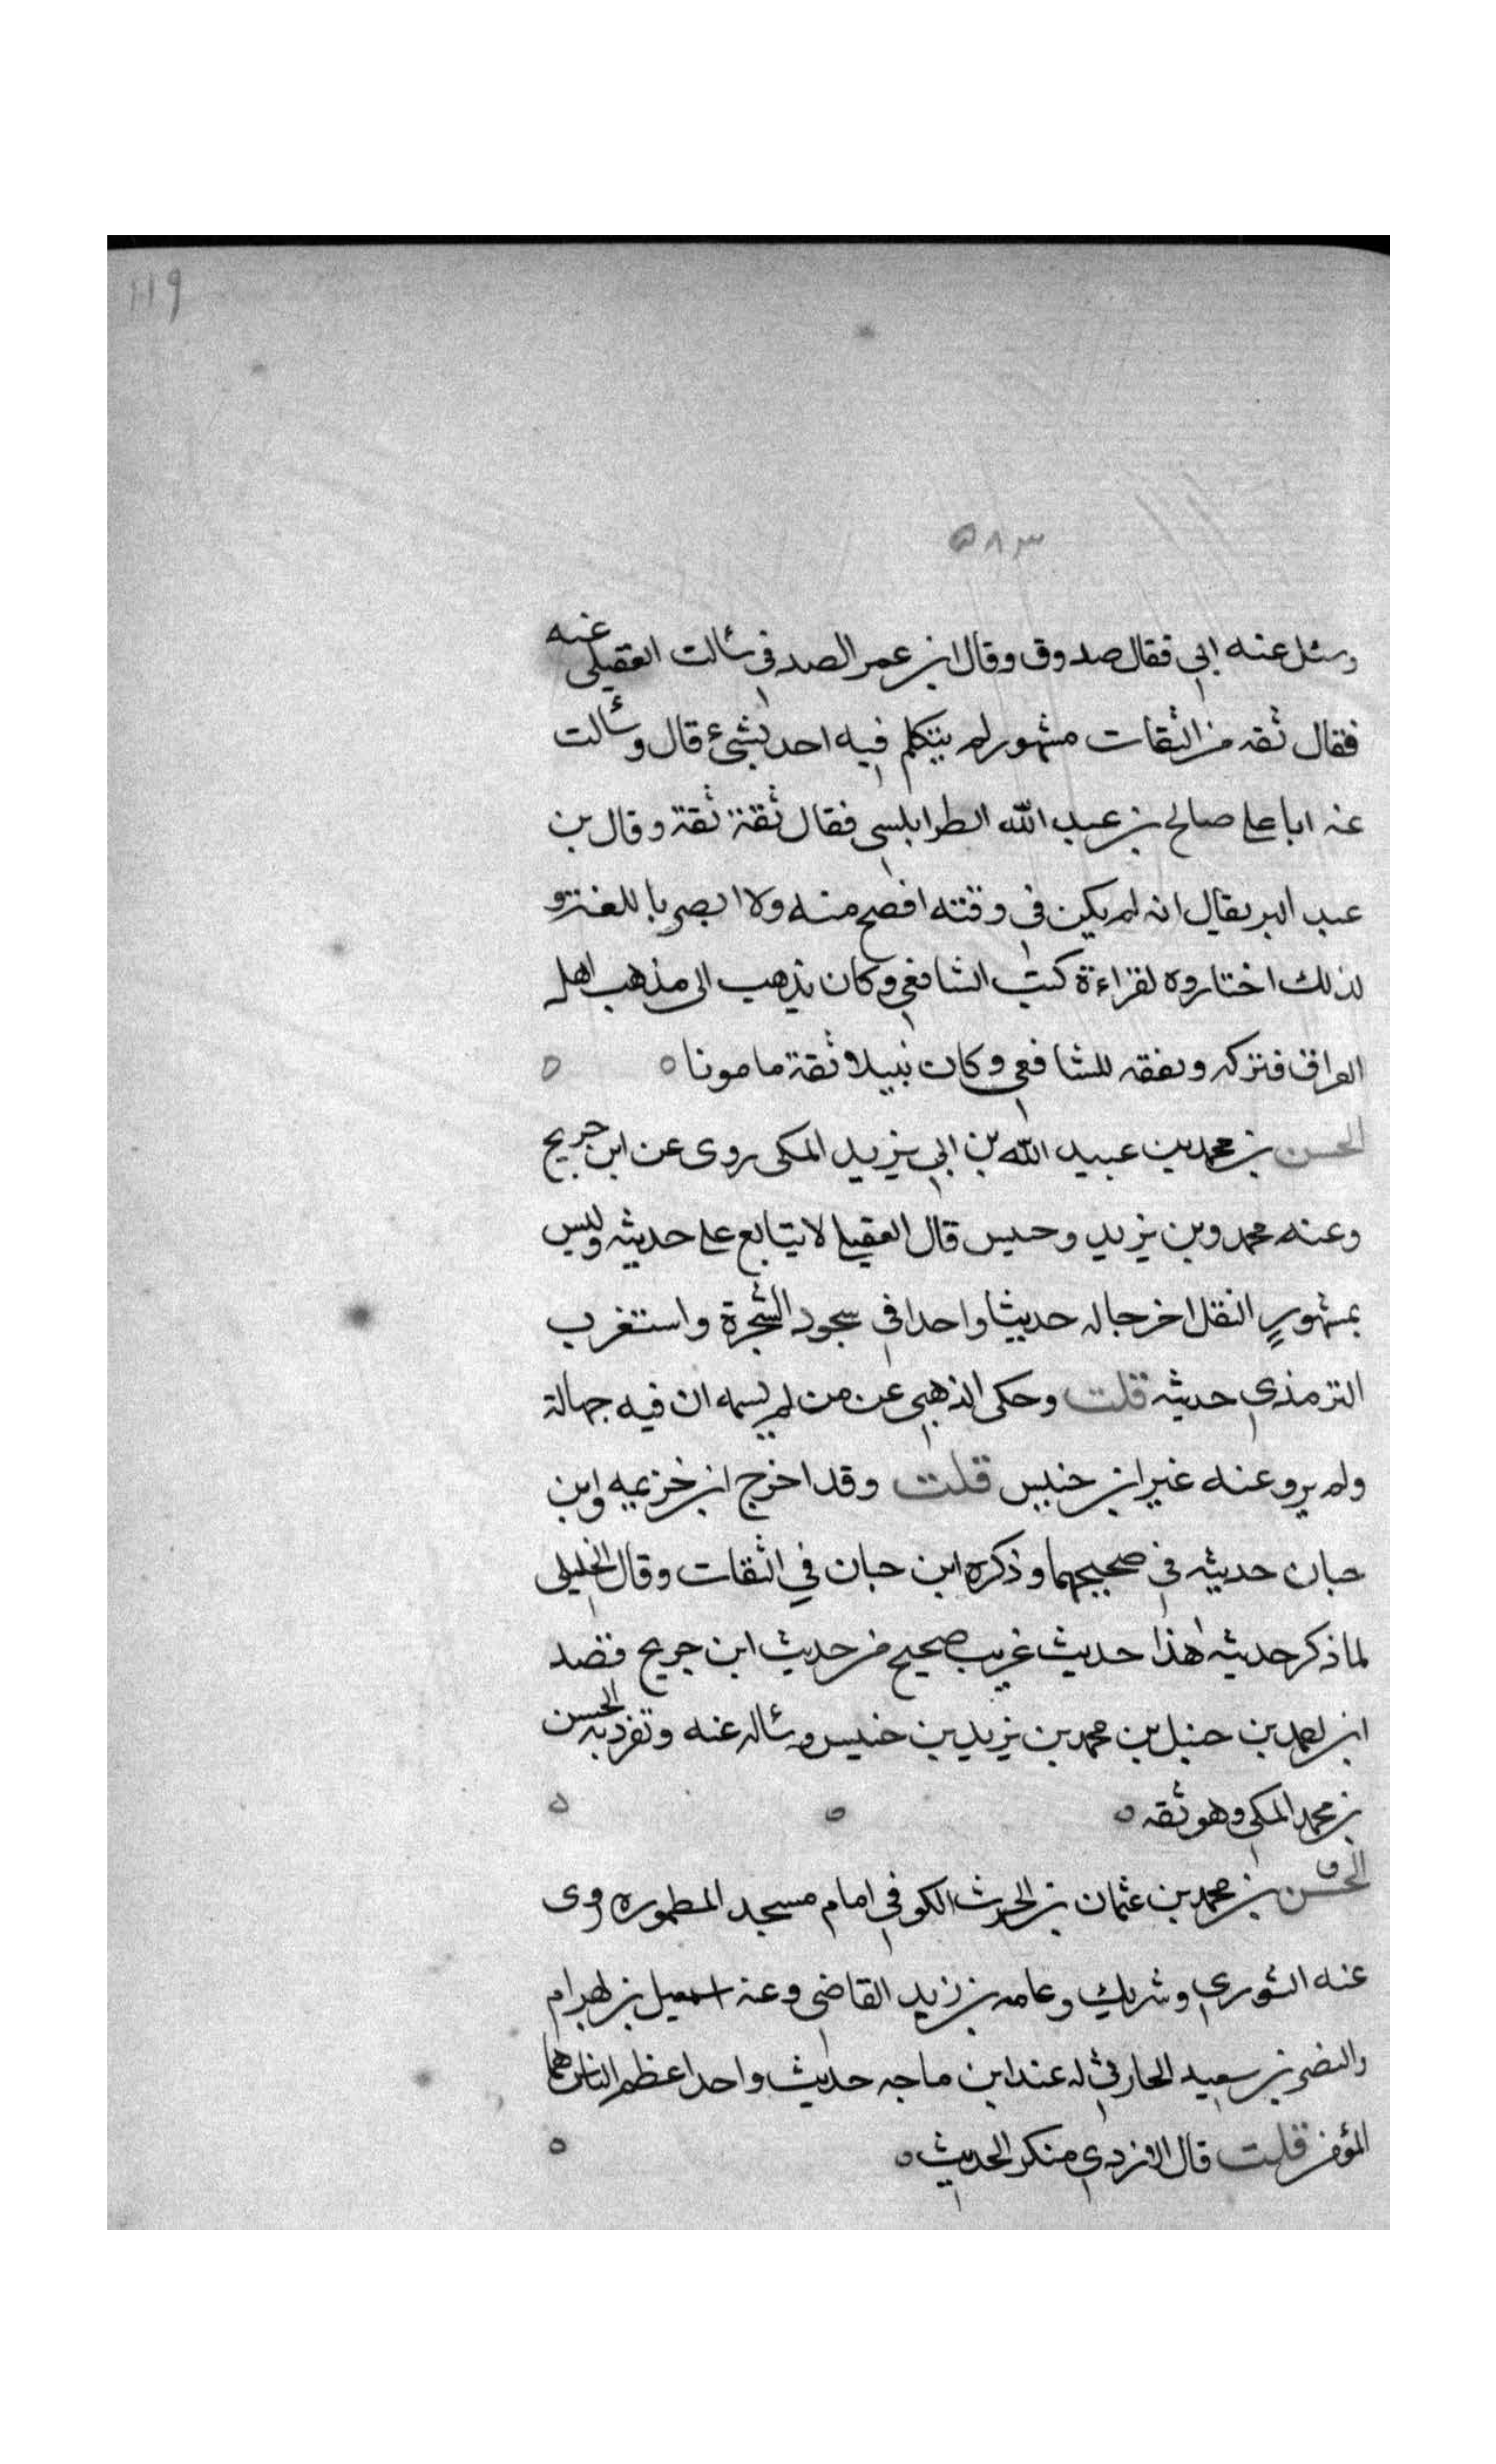 ١١٩
٥٨٣
وسئل عنه ابي فقال صدوق وقال ابن عمر الصدفي سئالت العقيلي عنه
فقال ثقه من الثقات مشهور لم يتكلم فيه احد بشئ قال وسئالت
عنه ابا على صالح بن عبد الله الطرابلسي فقال ثقة ثقة وقال بن
عبد البر يقال انه لم يكن في وقته افصح منه ولا ابصر باللغة و
لذلك اختاروه لقراءة كتب الشافعي وكان يذهب الى مذهب اهل
العراق فتركه وتفقه للشافعي وكان نبيلا ثقة مامونا ه ه
الحسن بن محمد بن عبيد الله بن ابي يزيد المكى روى عن ابن جريج
وعنه محمد وبن يزيد وحنيس قال العقيلي لا يتابع على حديثه وليس
بمشهور النقل اخرجا له حديثا واحدا في سجود الشجرة واستغرب
الترمذي حديثه قلت وحكى الذهبي عن من لم يسمه ان فيه جهالة
ولم يرو عنه غير ابن خنيس قلت وقد اخرج ابن خزيمه وابن
حبان حديثه في صحيحهما وذكره ابن حبان في الثقات وقال الخليلى
لما ذكر حديثه هذا حديث غريب صحيح من حديث ابن جريج قصد
ابن احمد بن حنبل بن محمد بن يزيد بن خنيس وسئاله عنه وتفرد به الحسن
بن محمد المكي وهو ثقه ه ه ه
الحسن ق بن محمد بن عثمان بن الحرث الكوفي امام مسجد المطموره روى
عنه الثوري وشريك وعامه بن زيد القاضى وعنه اسمعيل بن بهرام
والنضر بن سعيد الحارثي له عند ابن ماجه حديث واحد اعظم الناس هما
المؤمن قلت قال الازدي منكر الحديث ه ه